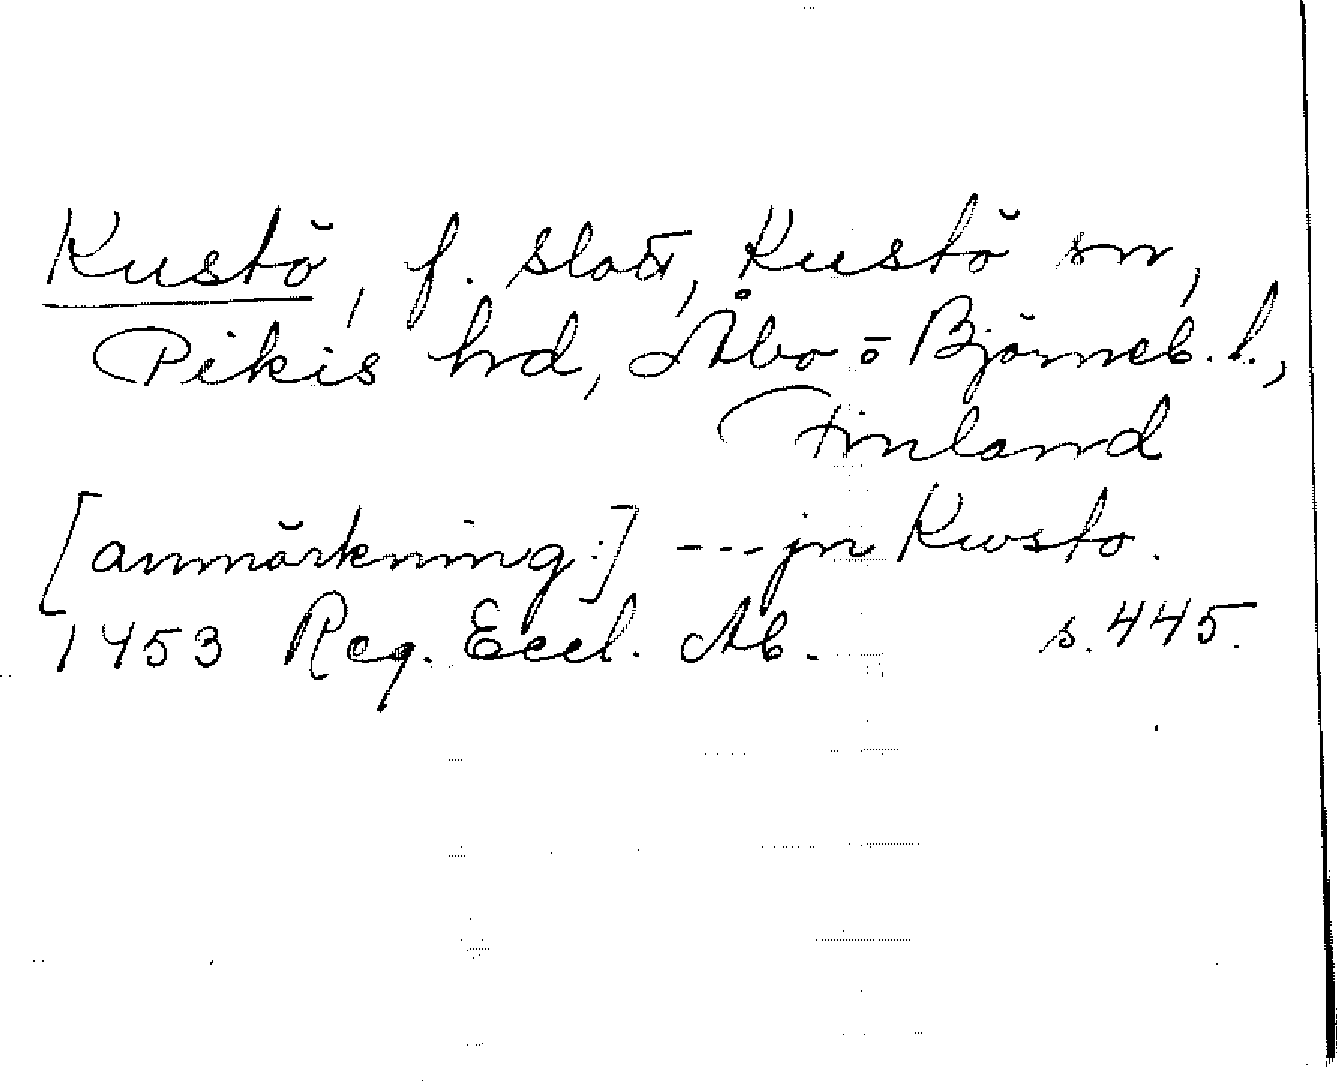 Kustö, f. slott, Kustö sn,
Pikis hd, Åbo o Björneb. l.,
Finland
[anmärkning:] --- jn Kwsto.
1453 Reg. Eccl. Ab. s. 445.